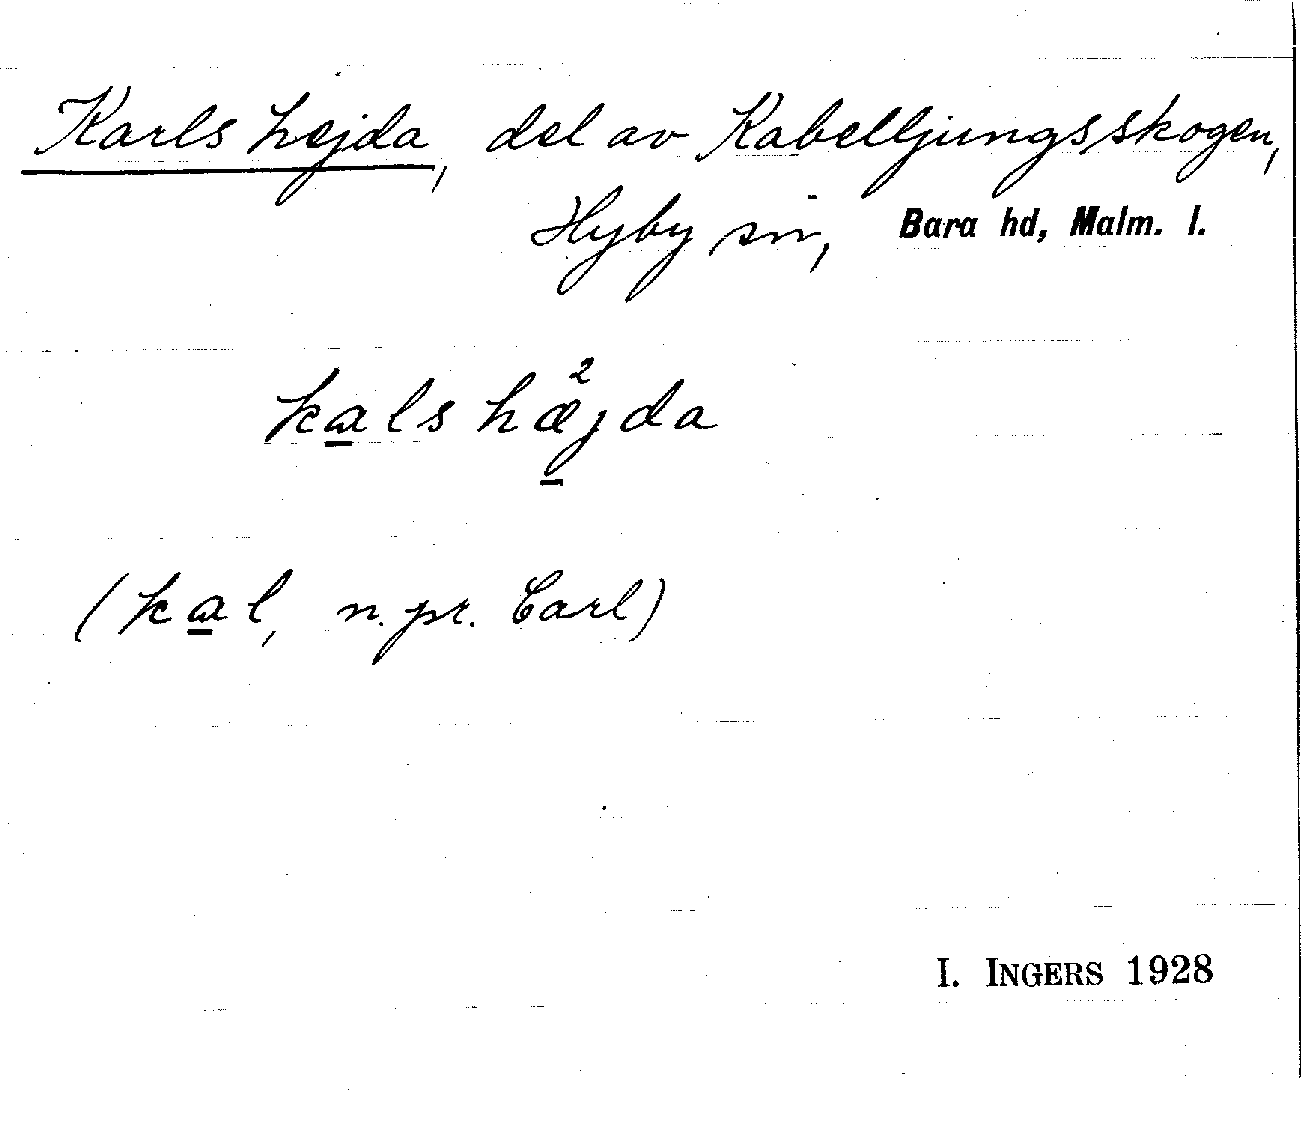 Karls hejda, del av Kabelljungsskogen,
Hyby sn, Bara hd, Malm. l.
kals hæ²jda
(kal, n. pr. Carl)
I. INGERS 1928